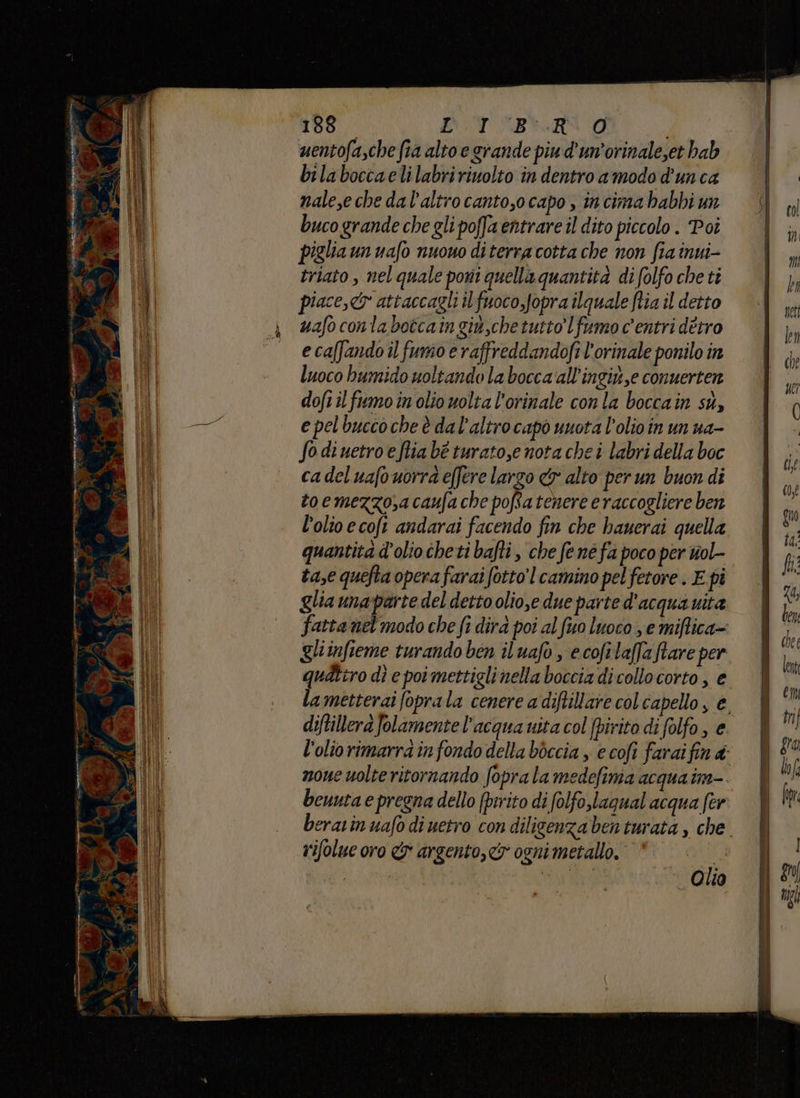 188 LIBRO
uentoſa,che ſia alto e grande piu d'un'orinale,et hab
bi la bocca e li labri riuolto in dentro a modo d'un ca
nale,e che da l'altro canto,o capo, in cima habbi un
buco grande che gli poſſa entrare il dito piccolo. Poi
piglia un uaſo nuouo di terra cotta che non ſia inui-
triato, nel quale poni quella quantità di ſolfo che ti
piace,& attaccagli il fuoco,ſopra ilquale ſtia il detto
uaſo con la bocca in giù,che tutto'l fumo c'entri détro
e caſſando il fumo e raffreddandoſi l'orinale ponilo in
luoco humido uoltando la bocca all'ingiù,e conuerten
doſi il fumo in olio uolta l'orinale con la bocca in sù,
e pel bucco che è da l'altro capo uuota l'olio in un ua-
ſo di uetro e ſtia bé turato,e nota che i labri della boc
ca del uaſo uorrà eſſere largo & alto per un buon di
to e mezzo,a cauſa che poſſa tenere e raccogliere ben
l'olio e coſi andarai facendo fin che hauerai quella
quantità d'olio che ti baſti, che ſe né fa poco per uol-
ta,e queſta opera farai ſotto'l camino pel fetore. E pi
glia una parte del detto olio,e due parte d'acqua uita
fatta nel modo che ſi dirà poi al ſuo luoco, e miſtica-
gli inſieme turando ben il uaſo, e coſi laſſa ſtare per
quattro dì e poi mettigli nella boccia di collo corto, e
la metterai ſopra la cenere a diſtillare col capello, e
diſtillerà ſolamente l'acqua uita col ſpirito di ſolfo, e
l'olio rimarrà in fondo della boccia, e coſi farai fin a
noue uolte ritornando ſopra la medeſima acqua im-
beuuta e pregna dello ſpirito di ſolfo,laqual acqua ſer
berai in uaſo di uetro con diligenza ben turata, che
riſolue oro & argento,& ogni metallo.
Olio